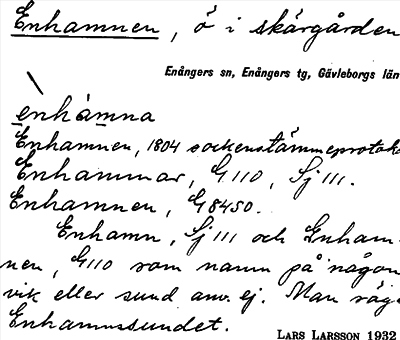 Enhamnen, ö i skärgården
Enångers sn, Enångers tg, Gävleborgs län
enhamna
Enhamnen, 1804 sockenstämmoprotok
Enhammar, G110, Sj 111.
Enhamnen, G8450.
Enhamn, Sj 111 och Enham-
nen, G110 som namn på någon
vik eller sund anv. ej. Man säg
Enhamnssundet.
LARS LARSSON 1932